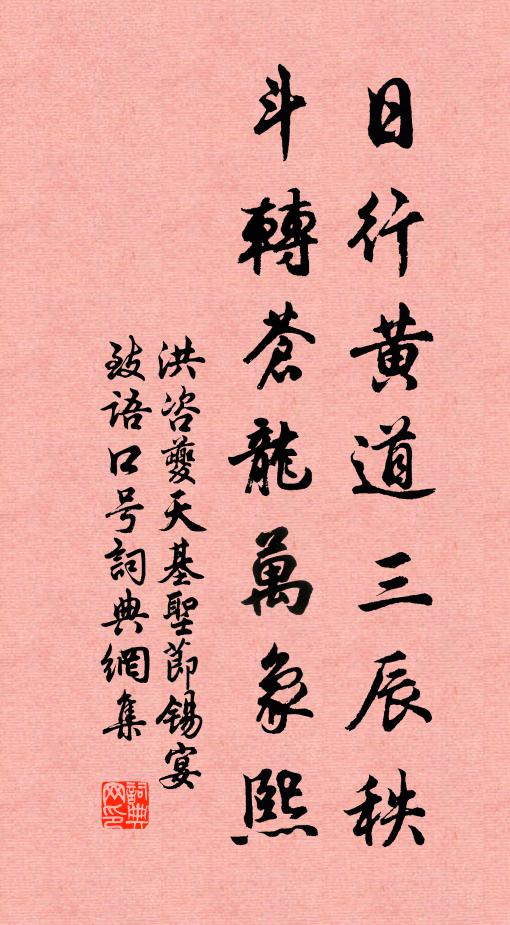 日行黄道三辰秩
斗轉蒼龍萬象熙
洪咨夔天基聖節錫宴
致語口号詞典網集
詞典网印